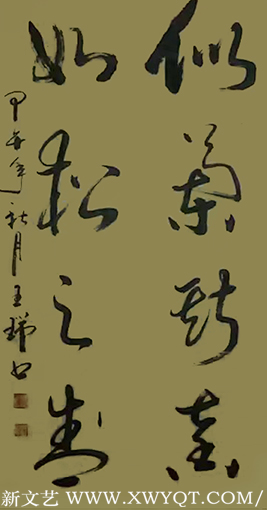 似蘭斯馨
如松之盛
甲午年秋月王瑞书
新文艺 WWW.XWYQT.COM/